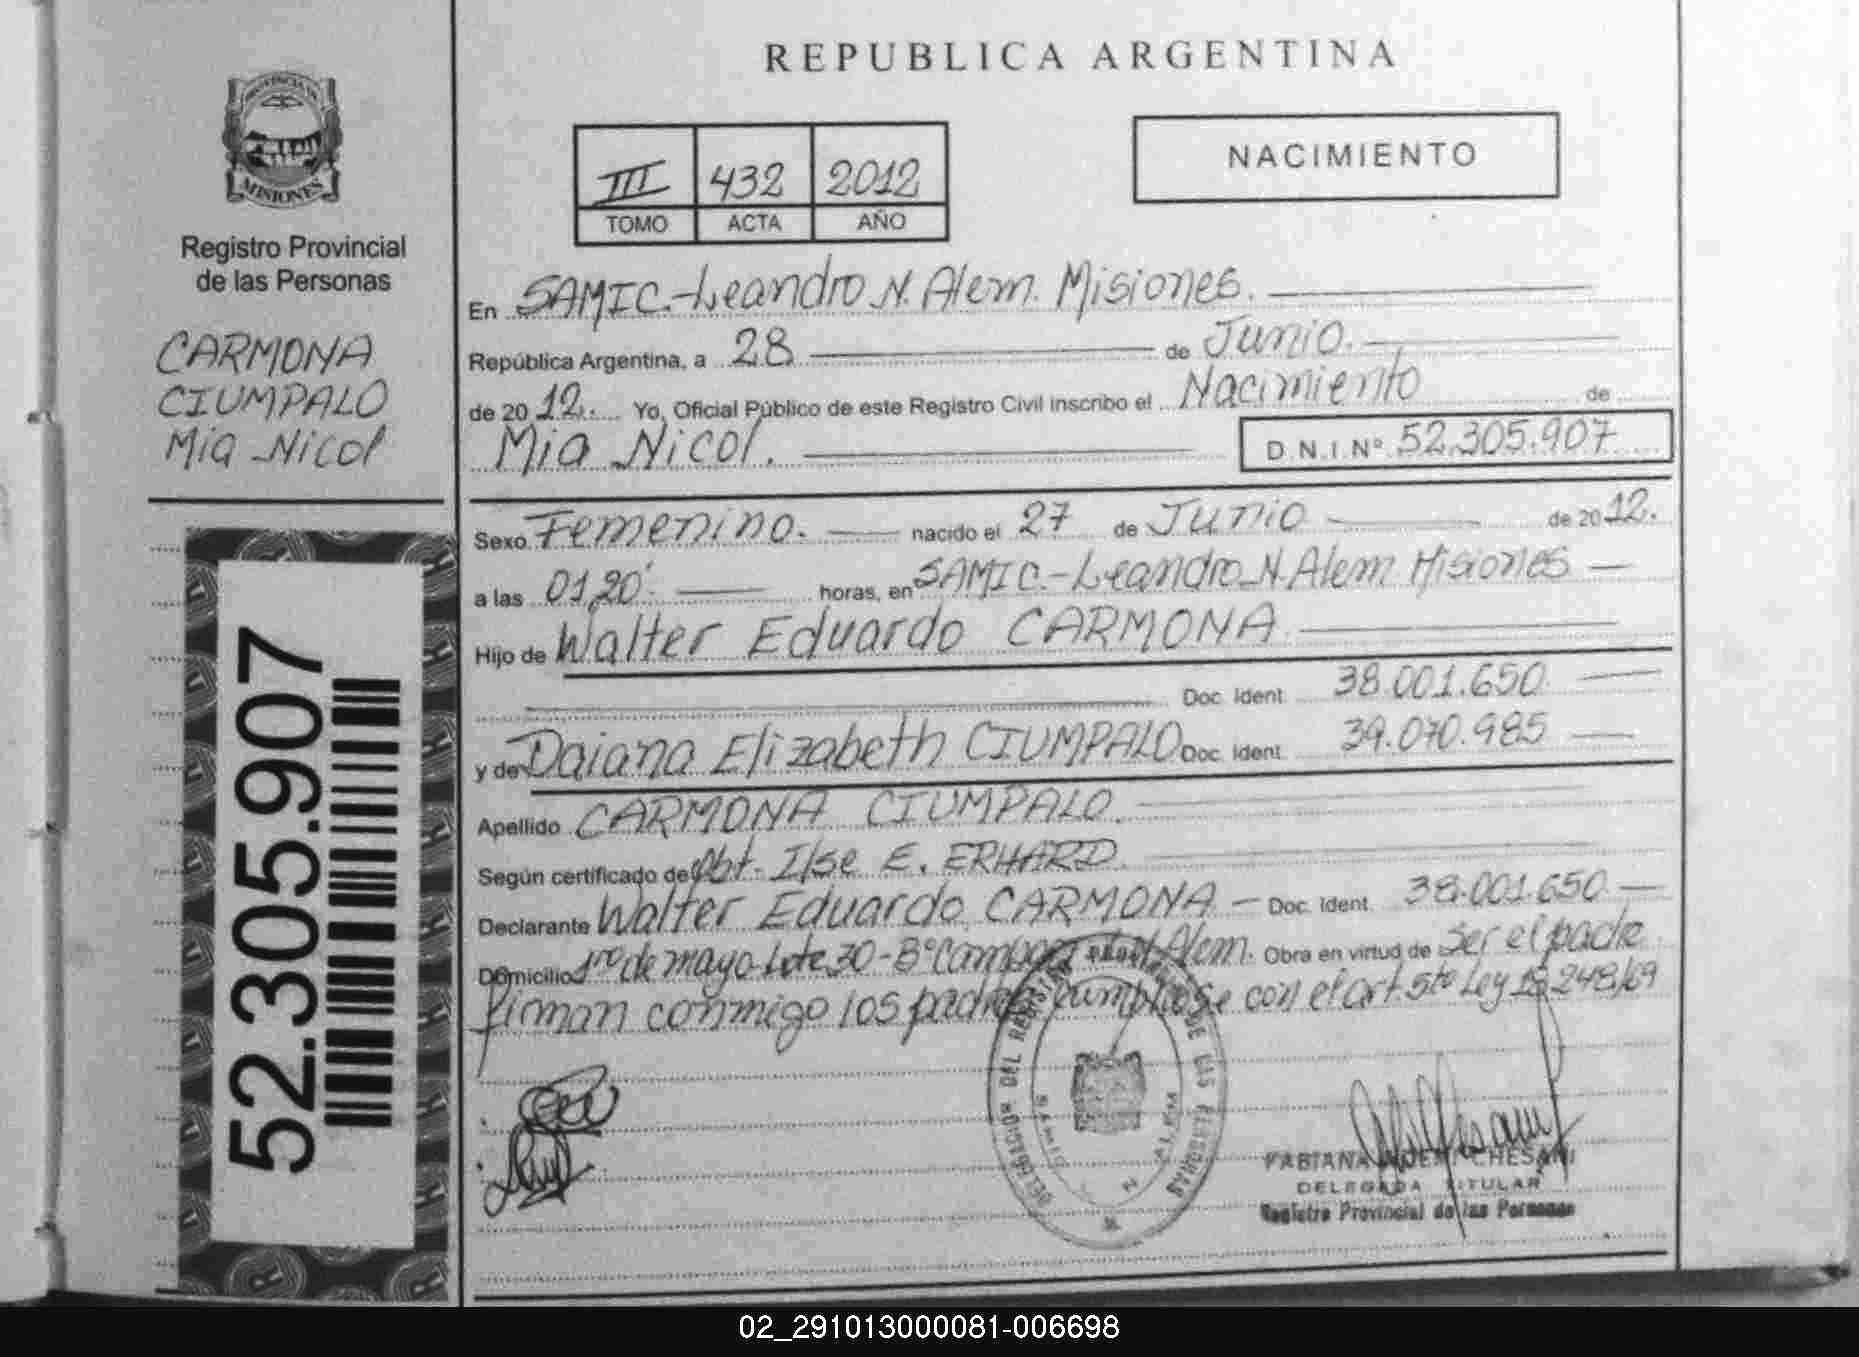 REPUBLICA ARGENTINA
PROVINCIA DE
MISIONES
Registro Provincial
de las Personas
CARMONA
CIUMPALO
Mia Nicol
52.305.907
III 432 2012
TOMO ACTA AÑO
NACIMIENTO
En SAMIC.-Leandro N. Alem. Misiones.
República Argentina, a 28 de Junio.
de 2012. Yo, Oficial Público de este Registro Civil inscribo el Nacimiento de
Mia Nicol. D.N.I.Nº 52.305.907
Sexo Femenino. nacido el 27 de Junio de 2012.
a las 01,20' horas, en SAMIC.-Leandro N. Alem Misiones
Hijo de Walter Eduardo CARMONA
Doc. Ident. 38.001.650
y de Daiana Elizabeth CIUMPALO Doc. Ident. 39.070.985
Apellido CARMONA CIUMPALO.
Según certificado de Obt. Ilse E. ERHARD.
Declarante Walter Eduardo CARMONA - Doc. Ident. 38.001.650
Domicilio 1ro de mayo Lote 30 - Bº N. Alem. Obra en virtud de ser el padre
firman conmigo los padres cumpliose con el art. 5to Ley 18.248/69
FABIANA CHESANI
DELEGADA TITULAR
Registro Provincial de las Personas
02_291013000081-006698